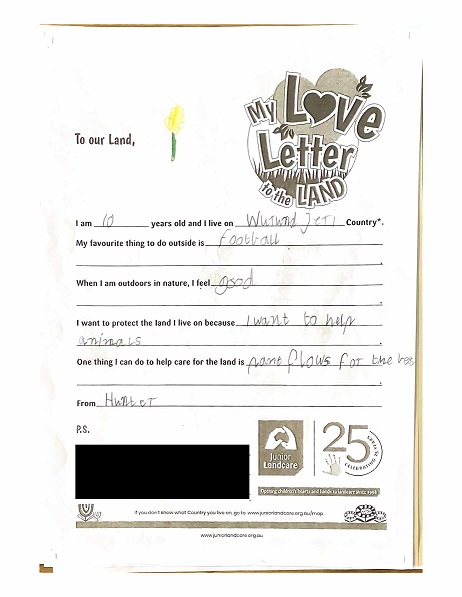 My Love
Letter
to the LAND
To our Land,
I am 10 years old and I live on Wurundjeri Country*.
My favourite thing to do outside is football
.
When I am outdoors in nature, I feel good
.
I want to protect the land I live on because I want to help
animals.
One thing I can do to help care for the land is pant flows for the bes
.
From Hunter
P.S.
Junior
Landcare
25
CELEBRATING 25 YEARS
Opening children's hearts and hands to landcare since 1998
If you don't know what Country you live on, go to www.juniorlandcare.org.au/map
www.juniorlandcare.org.au